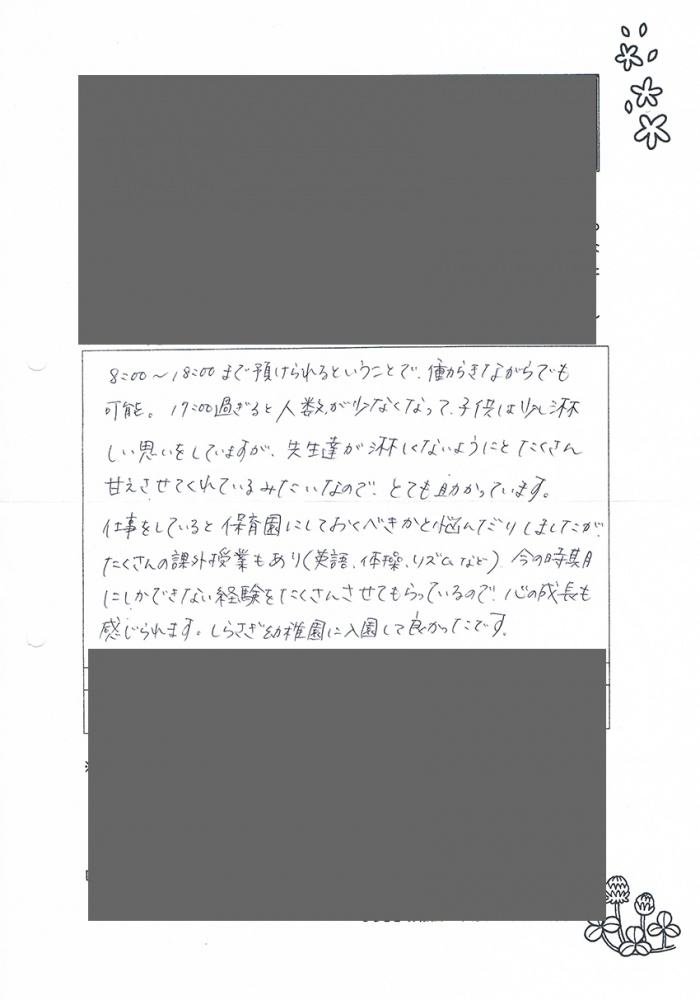 8:00〜18:00まで預けられるということで、働らきながらでも
可能。17:00過ぎると人数が少なくなって、子供は少し淋
しい思いをしていますが、先生達が淋しくないようにとたくさん
甘えさせてくれているみたいなので、とても助かっています。
仕事をしていると保育園にしておくべきかと悩んだりしましたが、
たくさんの課外授業もあり(英語、体操、リズムなど)今の時期
にしかできない経験をたくさんさせてもらっているので、心の成長も
感じられます。しらさぎ幼稚園に入園して良かったです。